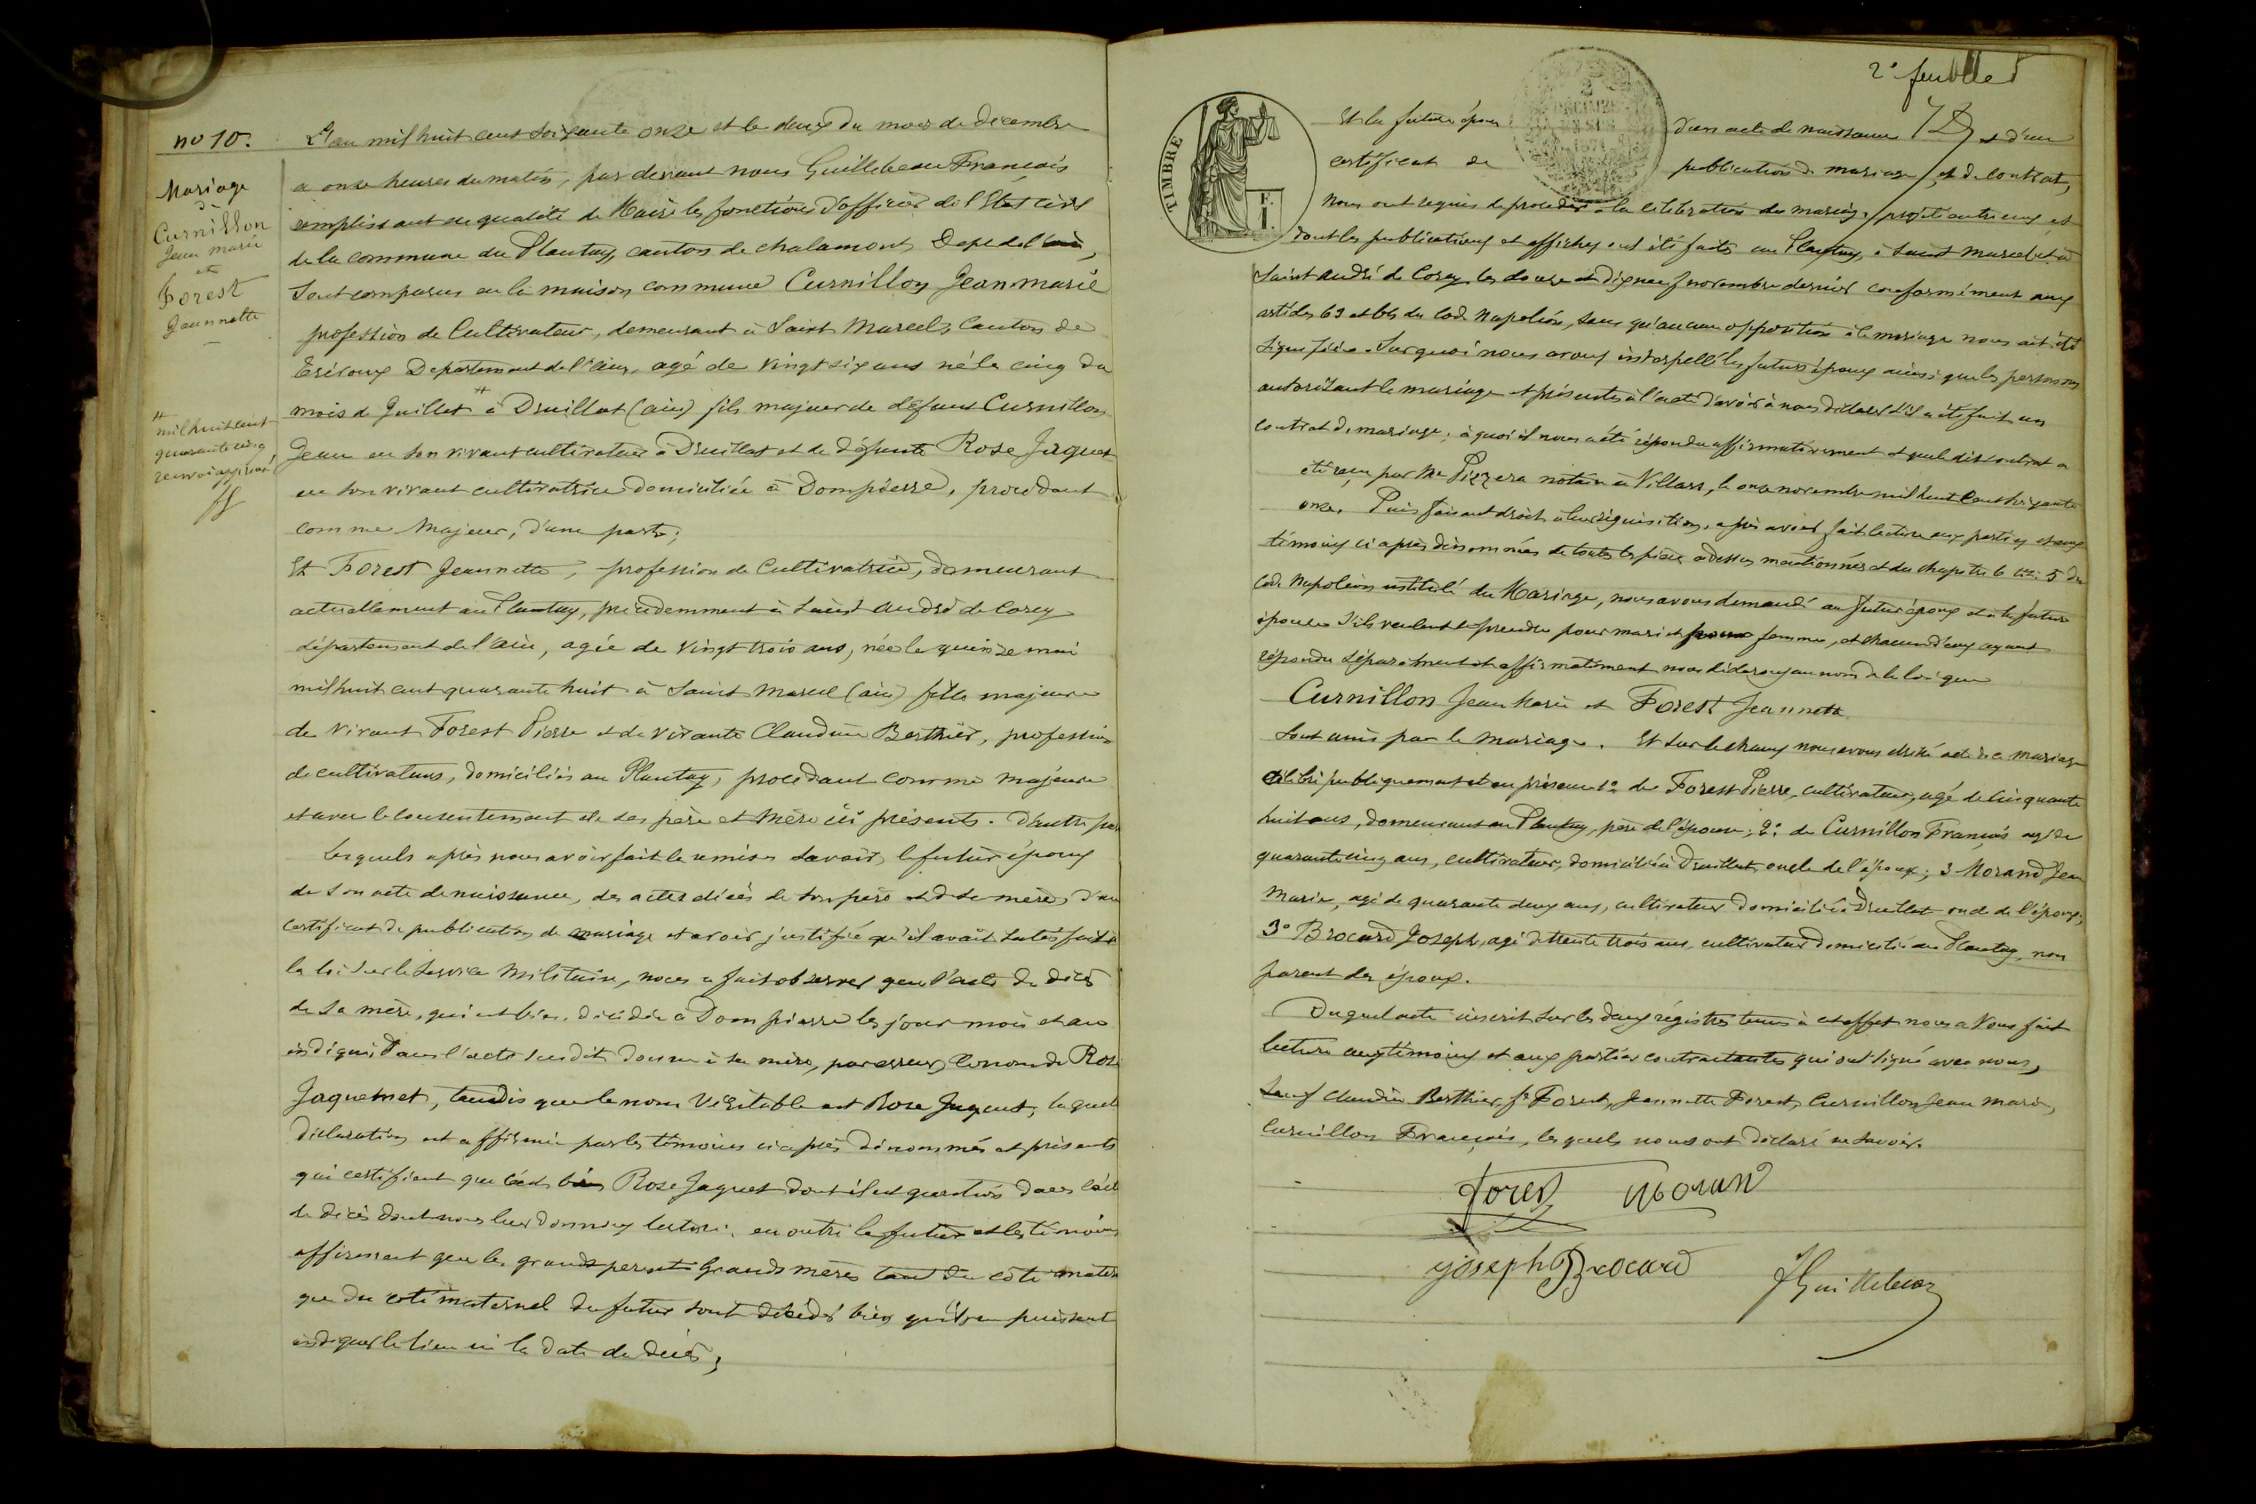 no 10.
Mariage
de
Curnillon
Jean marie
et
Forest
Jeannette
#
mil huit cent
quarante cinq
renvoi approuvé
L'an mil huit cent soixante onze et le deux du mois de decembre
a onze heures du matin, par devant nous Guillebeau Francois
remplissant en qualité de Maire les fonctions d'officier de l'Etat civil
de la commune du Plantay, canton de chalamont Dept de l'ain,
Sont comparus en la maison commune Curnillon Jean marie
profession de Cultivateur, demeurant à Saint Marcel, Canton de
Trévoux Departement de l'ain, agé de vingt six ans né le cinq du
mois de Juillet # à Druillat (ain) fils majeur de défunt Curnillon
Jean en son vivant cultivateur à Druillat et de défunte Rose Jaquet
en son vivant cultivatrice domiciliée à Dompierre, procédant
comme Majeur, d'une part;
Et Forest Jeannette, profession de Cultivatrice, demeurant
actuellement au Plantay, précédemment à Saint André de Corcy
département de l'ain, agée de vingt trois ans, née le quinze mai
mil huit cent quarante huit à Saint Marcel (ain) fille majeure
de vivant Forest Pierre et de vivante Claudine Berthier, profession
de cultivateurs, domiciliés au Plantay, procédant comme majeure
et avec le consentement de ses père et mère ici présents. D'autre part
Lesquels après nous avoir fait la remise savoir, le futur époux
de son acte de naissance, des actes décès de son père et de sa mère, d'un
certificat de publication de mariage et avoir justifié qu'il avait satisfait à
la loi sur le service Militaire, nous a fait observer que l'acte de décès
de sa mère, qui est bien décédée à Dompierre les jour mois et an
indiqués dans l'acte susdit donne à sa mère, par erreur, le nom de Rose
Jaquemet, tandis que le nom véritable est Rose Jaquet, laquelle
déclaration est affirmée par les témoins ci après dénommés et présents
qui certifient que c'est bien Rose Jaquet dont il est question dans l'acte
de décès dont nous leur donnons lecture. en outre le futur et les témoins
affirment que les grands perents Grands mères tant du côté
que du coté maternel du futur sont décédés bien qu'ils ne puissent
indiquer le lieu ni la date du décès,
2e feuillet
TIMBRE
2
DÉCIMES
EN SUS
1871
F.
1
Et la future épouse d'un acte de naissance et d'un
certificat de publication de mariage, et de contrat,
Nous ont requis de procéder à la célébration du mariage projeté entre eux et
dont les publications et affiches ont été faites au Plantay, à Saint Marcel et à
Saint André de Corcy les douze et dix neuf novembre dernier conformément aux
articles 63 et du Code Napoléon, sans qu'aucune opposition à ce mariage nous ait été
signifiée. Sur quoi nous avons interpellé les futurs époux ainsi que les personnes
autorisant le mariage et présentes à l'acte d'avoir à nous déclarer s'il a été fait un
contrat de mariage; à quoi il nous a été répondu affirmativement et que le dit contrat a
été reçu par Me Pizzera notaire à Villars, le onze novembre mil huit cent soixante
onze. Puis faisant droit à leur réquisition, après avoir fait lecture aux parties et aux
témoins ci après dénommés de toutes les pièces cidessus mentionnées et du chapitre 6 titre 5 du
Code Napoléon intitulé du Mariage, nous avons demandé au futur époux et à la future
épouse s'ils veulent se prendre pour mari et pour femme, et chacun d'eux ayant
répondu séparément et affirmativement nous déclarons au nom de la loi que
Curnillon Jean Marie et Forest Jeannette
Sont unis par le mariage. Et sur le champ nous avons dressé acte de ce mariage
célébré publiquement et en présence 1o de Forest Pierre, cultivateur, agé de cinquante
huit ans, demeurant au Plantay, père de l'épouse; 2o de Curnillon François agé de
quarante cinq ans, cultivateur, domicilié à Druillat, oncle de l'époux; 3 Morand Jean
Marie, agé de quarante deux ans, cultivateur domicilié à Druillat oncle de l'époux;
3o Brocard Joseph, agé de trente trois ans, cultivateur domicilié au Plantay, non
parent des époux.
Duquel acte inscrit sur les deux régistres tenus à cet effet nous avons fait
lecture aux témoins et aux parties contractantes qui ont signé avec nous,
Sauf Claudine Berthier, Forest, Jeannette Forest, Curnillon Jean Marie,
Curnillon François, lesquels nous ont déclaré ne savoir.
Forest Moran
joseph Brocard
Guillebeau